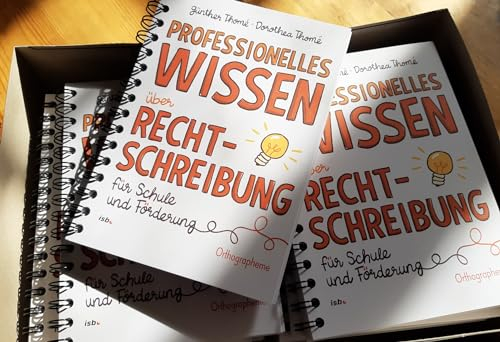 Günther Thomé · Dorothea Thomé
PROFESSIONELLES
WISSEN
über
RECHT-
SCHREIBUNG
für Schule
und Förderung
isb
Orthographeme
Thomé · Dorothea Thomé
FESSIONELLES
WISSEN
über
RECHT-
SCHREIBUNG
für Schule
und Förderung
isb
Orthographeme
für Schule
und Förderung
isb
Orthographeme